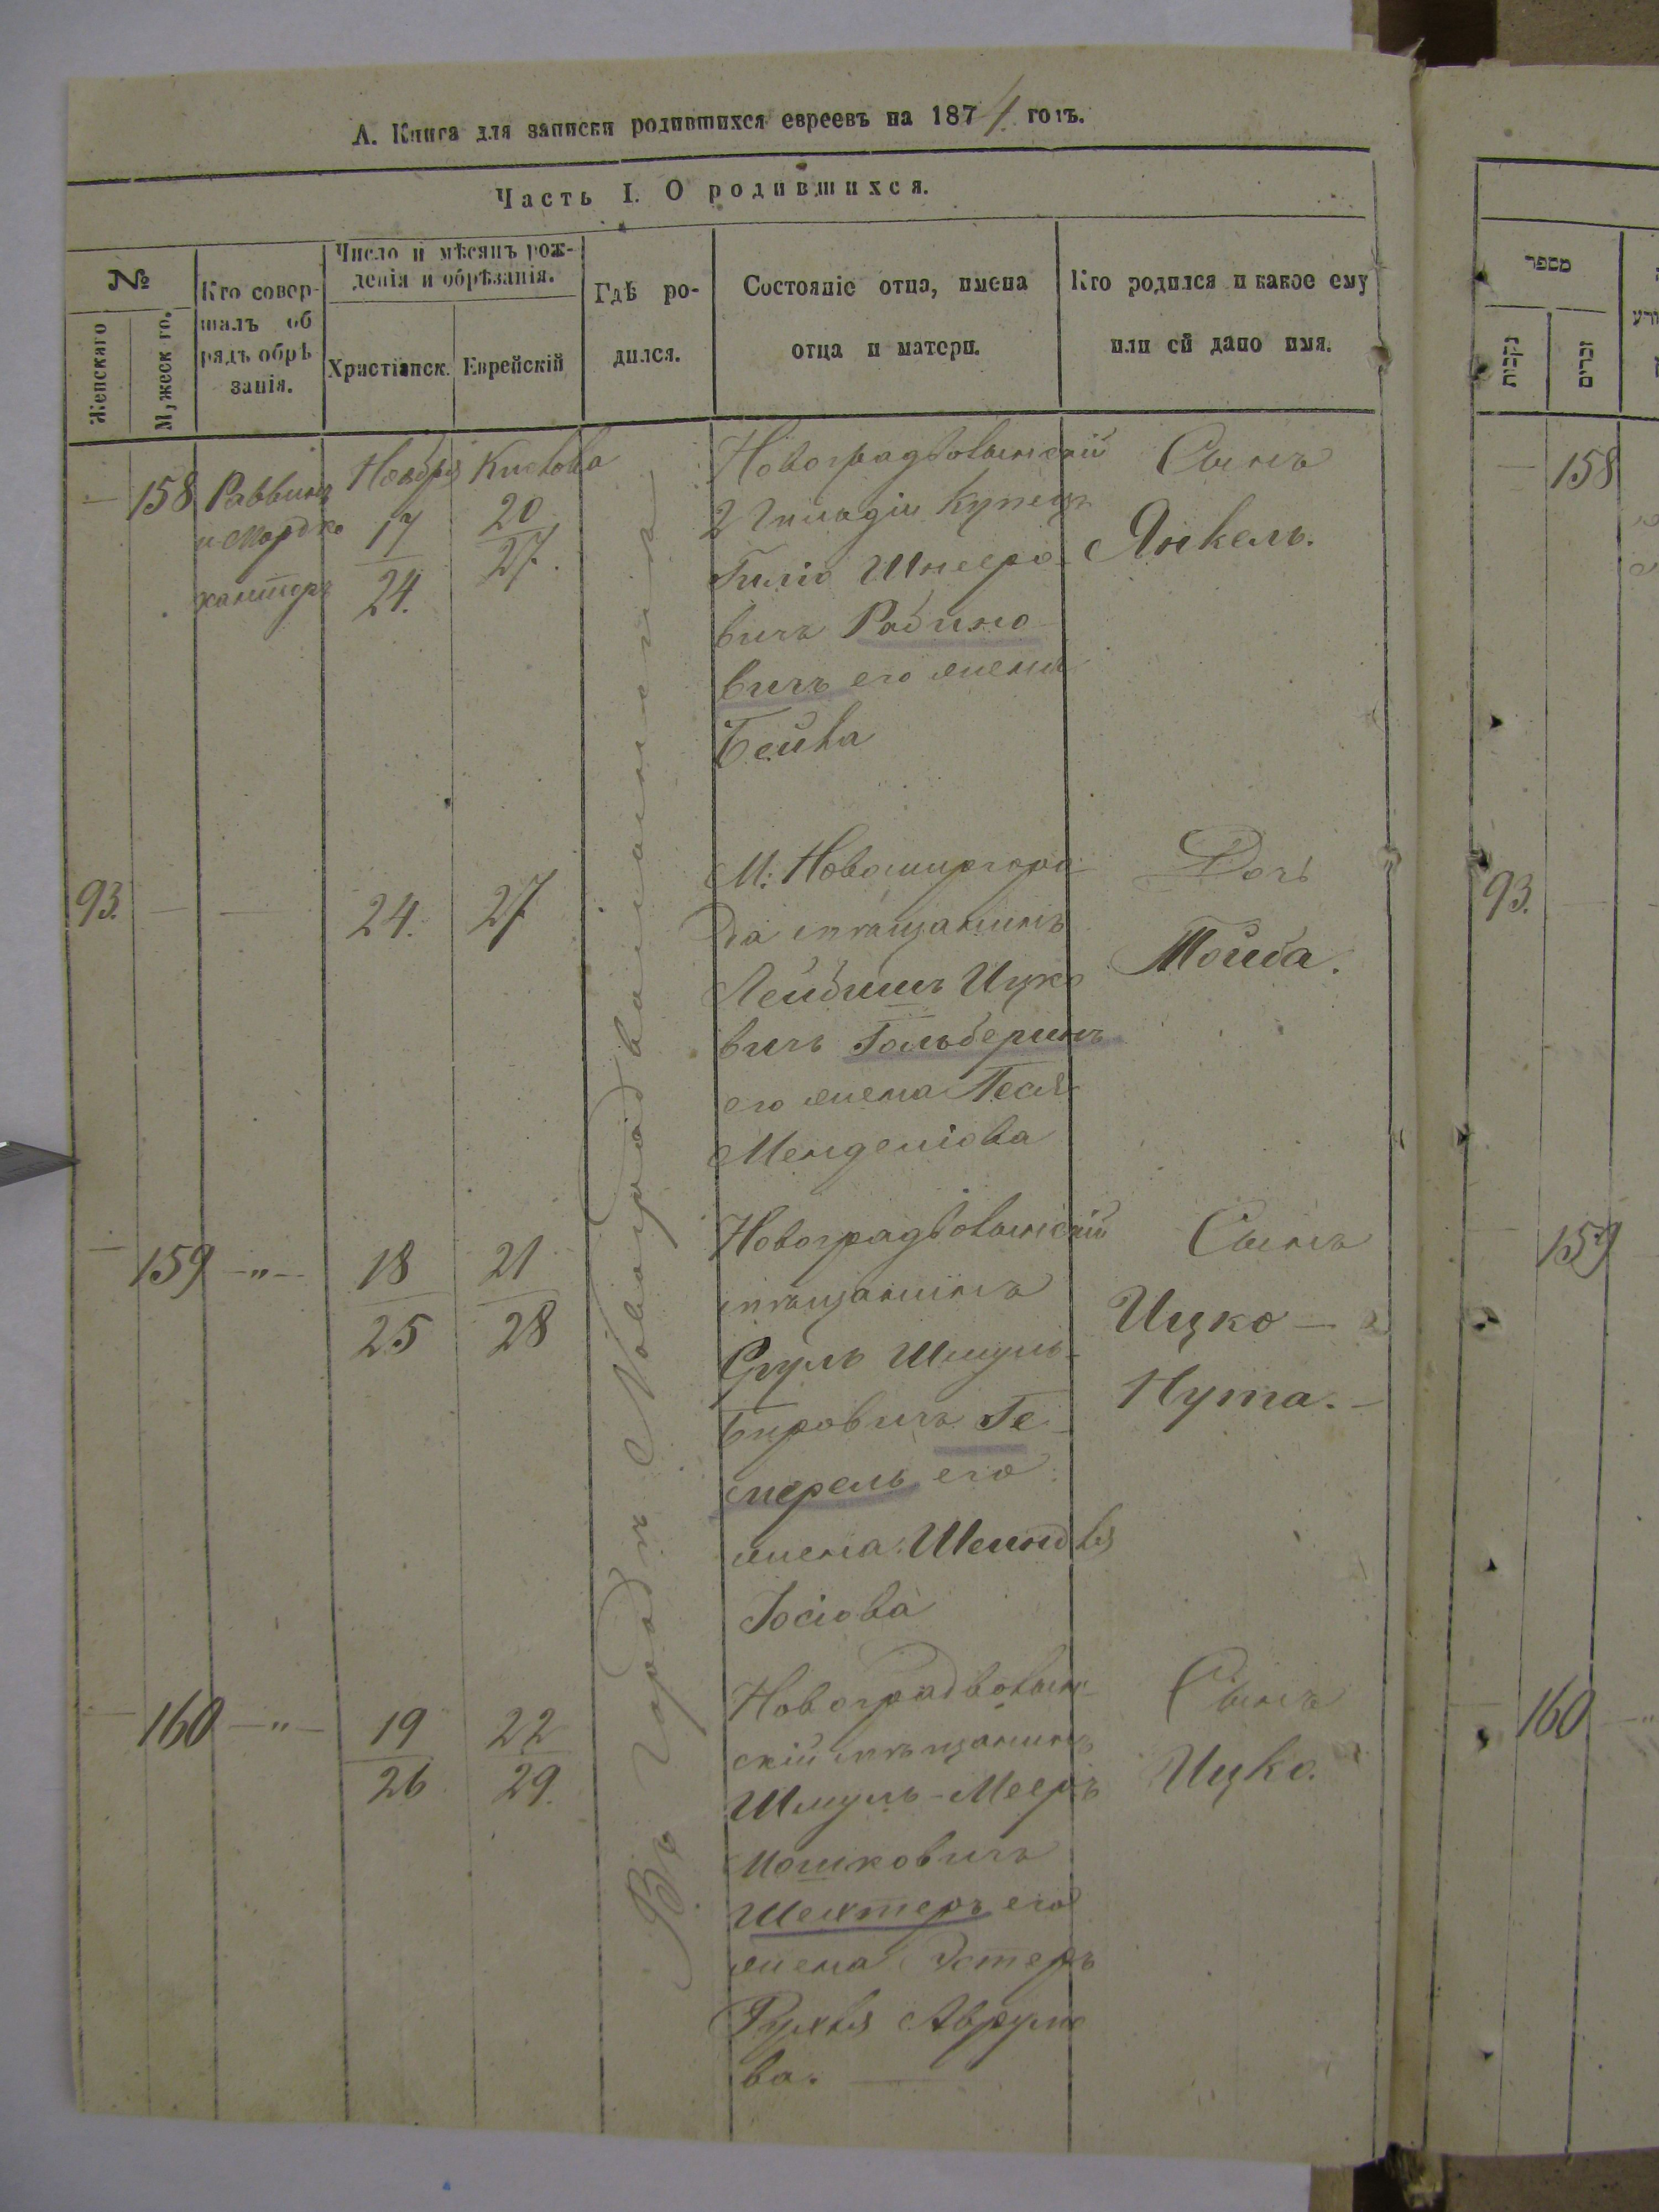 А. Книга для записки родившихся евреевъ на 1874 годъ.
Часть I. О родившихся.
№
Женскаго
Мужеского.
Кто совер-
шалъ об
рядъ обрѣ
занія.
Число и мѣсяцъ рож-
денія и обрѣзанія.
Христіанск.
Еврейскій
Гдѣ ро-
дился.
Состояніе отца, имена
отца и матери.
Кто родился и какое ему
или ей дано имя.
— 158
Раввинъ
и Мордко
кантеръ
Ноября
17
24.
Кислова
20
27.
Въ городѣ Новоградволынскѣ
Новоградволынскій
2 Гильдіи Купецъ
Шнееро
вичъ Рабино
вичъ его жена
Бейва
Сынъ
Янкель.
93. — —
24.
27
М: Новомиргоро
да мѣщанинъ
Лейбишъ Ицко
вичъ Гольберинъ
его жена Песя
Менделіова
Дочь
Тойба.
— 159 —"—
18
25
21
28
Новоградволынскій
мѣщанинъ
Сруль Шмуль-
Беровичъ Ге
мерель его
жена Шейндля
Іосіова
Сынъ
Ицко —
Нута. —
— 160 —"—
19
26
22
29.
Новоградволын-
скій мѣщанинъ
Шмуль-Мееръ
Мошковичъ
Шехтеръ его
жена Эстеръ
Рухля Аврумо
ва.
Сынъ
Ицко.
מספר
נקבות
זכרים
— 158
93.
159
160